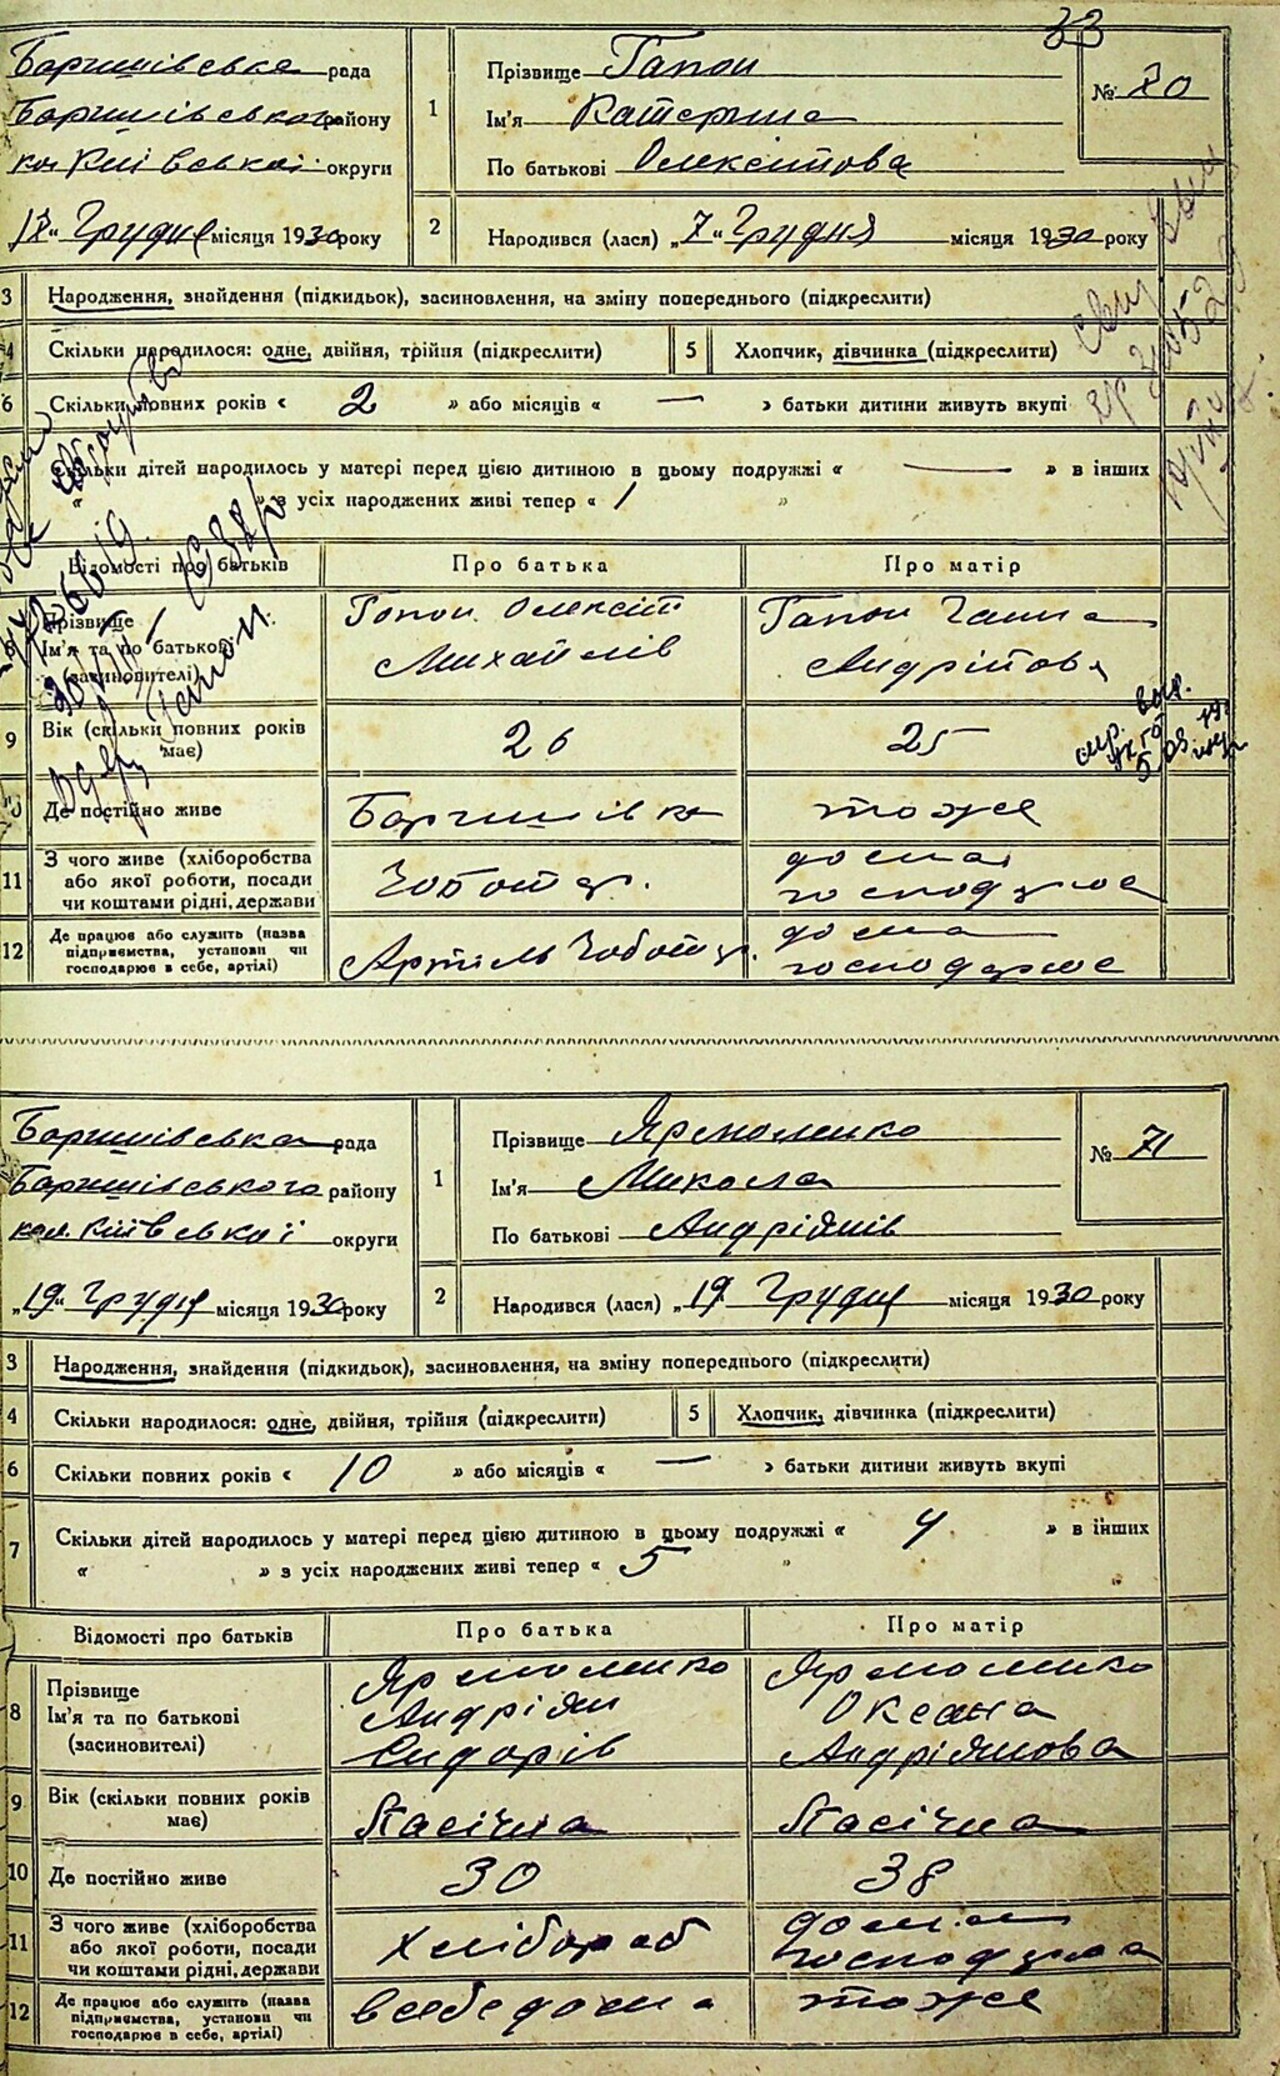 33
Баришівська рада
Баришівського району
кол Київської округи
1
Прізвище Гапон
Ім'я Катерина
По батькові Олексіїова
№ 70
Грудня місяця 1930 року
2
Народився (лася) „7“ Грудня місяця 1930 року
3 Народження, знайдення (підкидьок), засиновлення, на зміну попереднього (підкреслити)
4 Скільки народилося: одне, двійня, трійня (підкреслити) 5 Хлопчик, дівчинка (підкреслити)
6 Скільки повних років « 2 » або місяців « — » батьки дитини живуть вкупі
Скільки дітей народилось у матері перед цією дитиною в цьому подружжі « — » в інших
« » з усіх народжених живі тепер « 1 »
Відомості про батьків Про батька Про матір
8 Прізвище Ім'я та по батькові (засиновителі)
Гапон Олексій Михайлів
Гапон Ганна Андрійова
9 Вік (скільки повних років має) 26 25
10 Де постійно живе Баришівка тоже
11 З чого живе (хліборобства або якої роботи, посади чи коштами рідні, держави
Чоботар.
дома господарює
12 Де працює або служить (назва підприємства, установи чи господарює в себе, артілі)
Артіль Чоботар.
дома господарює
Баришівська рада
Баришівського району
кол. Київської округи
1
Прізвище Ярмоленко
Ім'я Микола
По батькові Андріянів
№ 71
„19“ Грудня місяця 1930 року
2
Народився (лася) „19 Грудня місяця 1930 року
3 Народження, знайдення (підкидьок), засиновлення, на зміну попереднього (підкреслити)
4 Скільки народилося: одне, двійня, трійня (підкреслити) 5 Хлопчик, дівчинка (підкреслити)
6 Скільки повних років « 10 » або місяців « — » батьки дитини живуть вкупі
7 Скільки дітей народилось у матері перед цією дитиною в цьому подружжі « 4 » в інших
« » з усіх народжених живі тепер « 5 »
Відомості про батьків Про батька Про матір
8 Прізвище Ім'я та по батькові (засиновителі)
Ярмоленко Андріян Сидорів
Ярмоленко Оксана Андріянова
9 Вік (скільки повних років має) Пасічна Пасічна
10 Де постійно живе 30 38
11 З чого живе (хліборобства або якої роботи, посади чи коштами рідні, держави
хлібороб
дома господарює
12 Де працює або служить (назва підприємства, установи чи господарює в себе, артілі)
в себе дома
тоже